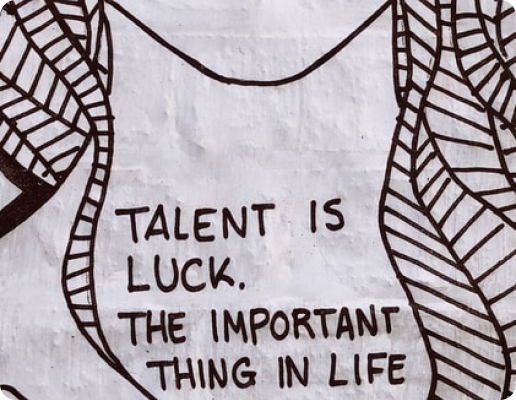 TALENT IS
LUCK.
THE IMPORTANT
THING IN LIFE